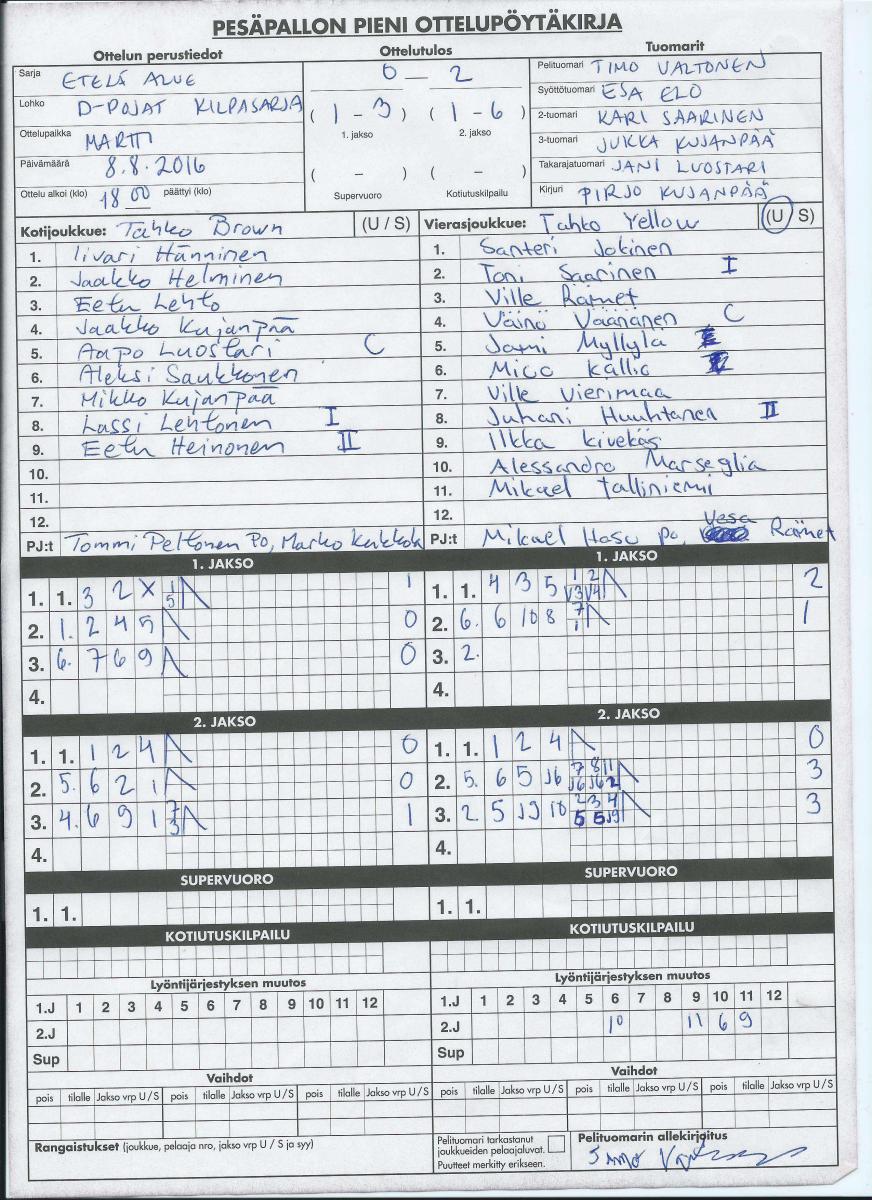 PESÄPALLON PIENI OTTELUPÖYTÄKIRJA
Ottelun perustiedot
Sarja ETELÄ ALUE
Lohko D-POJAT KILPASARJA
Ottelupaikka MARTTI
Päivämäärä 8.8.2016
Ottelu alkoi (klo) 18 00 päättyi (klo)
Ottelutulos
0 – 2
( 1 - 3 ) ( 1 - 6 )
1. jakso 2. jakso
( – ) ( – )
Supervuoro Kotiutuskilpailu
Tuomarit
Pelituomari TIMO VALTONEN
Syöttötuomari ESA ELO
2-tuomari KARI SAARINEN
3-tuomari JUKKA KUJANPÄÄ
Takarajatuomari JANI LUOSTARI
Kirjuri PIRJO KUJANPÄÄ
Kotijoukkue: Tahko Brown (U / S)
1. Iivari Hänninen
2. Jaakko Helminen
3. Eetu Lehto
4. Jaakko Kujanpää
5. Aapo Luostari C
6. Aleksi Saukkonen
7. Mikko Kujanpää
8. Lassi Lehtonen I
9. Eetu Heinonen II
10.
11.
12.
PJ:t Tommi Peltonen Po, Marko Kukkola
Vierasjoukkue: Tahko Yellow (U / S)
1. Santeri Jokinen
2. Toni Saarinen I
3. Ville Rämet
4. Väinö Väänänen C
5. Jami Myllylä
6. Mico Kallio
7. Ville Vierimaa
8. Juhani Huuhtanen II
9. Ilkka Kivekäs
10. Alessandro Marseglia
11. Mikael Talliniemi
12.
PJ:t Mikael Hasu po, Vesa Rämet
1. JAKSO
1. 1. 3 2 X 1 5 1
2. 1. 2 4 5 0
3. 6. 7 6 9 0
4.
1. JAKSO
1. 1. 4 3 5 1 2 V3 V4 2
2. 6. 6 10 8 7 1 1
3. 2.
4.
2. JAKSO
1. 1. 1 2 4 0
2. 5. 6 2 1 0
3. 4. 6 9 1 7 3 1
4.
2. JAKSO
1. 1. 1 2 4 0
2. 5. 6 5 J6 7 8 11 J6 J6 2 3
3. 2. 5 J9 10 2 3 4 5 5 J9 3
4.
SUPERVUORO
1. 1.
SUPERVUORO
1. 1.
KOTIUTUSKILPAILU
KOTIUTUSKILPAILU
Lyöntijärjestyksen muutos
1.J 1 2 3 4 5 6 7 8 9 10 11 12
2.J
Sup
Lyöntijärjestyksen muutos
1.J 1 2 3 4 5 6 7 8 9 10 11 12
2.J 10 11 6 9
Sup
Vaihdot
pois tilalle Jakso vrp U / S pois tilalle Jakso vrp U / S pois tilalle Jakso vrp U / S
Vaihdot
pois tilalle Jakso vrp U / S pois tilalle Jakso vrp U / S pois tilalle Jakso vrp U / S
Rangaistukset (joukkue, pelaaja nro, jakso vrp U / S ja syy)
Pelituomari tarkastanut
joukkueiden pelaajaluvat.
Puutteet merkitty erikseen.
Pelituomarin allekirjoitus